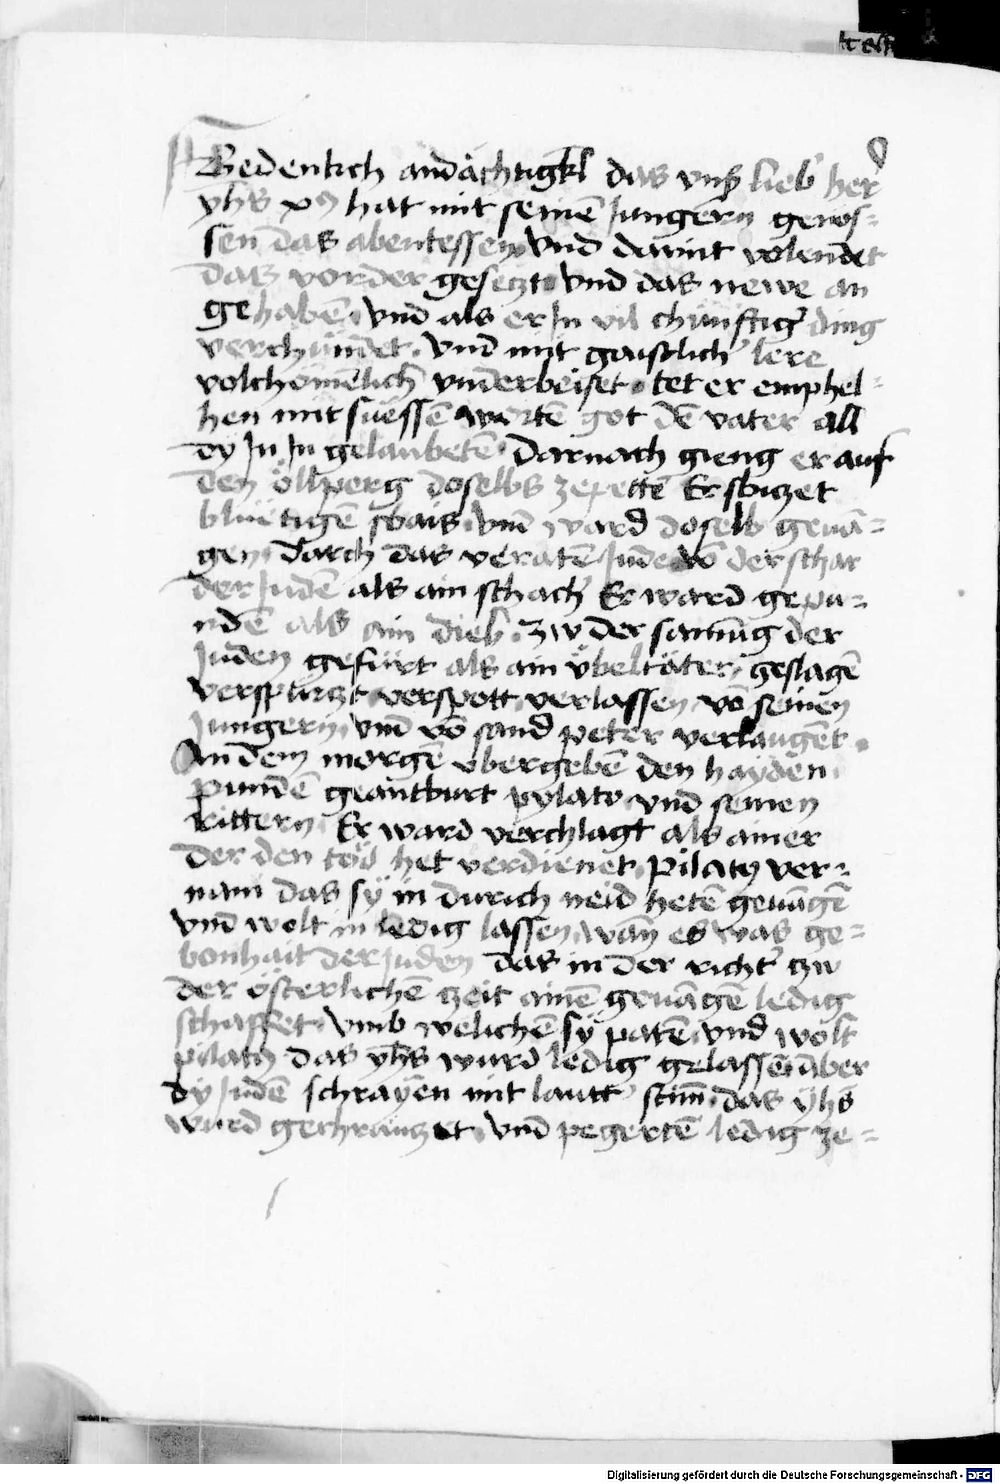 Gedenkch andächtigkl das vnß lieb her
yhs xp̄s hat mit seinē Jungern genos=
sen das abentessen vnd damit volendet
das vorder gesetzt vnd das newe an
gehabē vnd als er In vil chünftig ding
verchündet. vnd mit gaistlich lere
volchömēlich vnderbeiset. tet er emphel=
hen mit süessē wortē got dē vater all
dy In In gelaubetē Darnach gieng er auf
den öllperg doselbs ze pettē Er sbiczet
bluetigē sbais vnd ward doselb geuā=
gen, Darch das veratē Jude vō der schar
der Judē als ain schach Er ward gepu=
ndē als ain dieb. zw der samūg der
Juden gefürt als ain übeltäter, geslagē
verspurczt verspott verlassen vō seinen
Jungern, vnd vō sand peter verlaugēt.
An dem morgē vbergebē den hayden
pundē geantburt pylato vnd seinen
rittern, Er ward verchlagt als ainer
der den töd het verdienet, Pilatꝯ ver=
nam das sÿ in durich neid hetē geuāgē
vnd wolt in ledig lassen, wan es was ge=
bonhait der Juden das in der richt zw
der österlichē zeit ainē geuāgē ledig
schaffet. vmb welichē sÿ patē vnd wolt
pilatꝯ das yhs wurd ledig gelassē aber
dy Judē schrayen mit lautt stim̄, das yhs
wurd gechräwczet, vnd pegertē ledig ze=
Digitalisierung gefördert durch die Deutsche Forschungsgemeinschaft - DFG